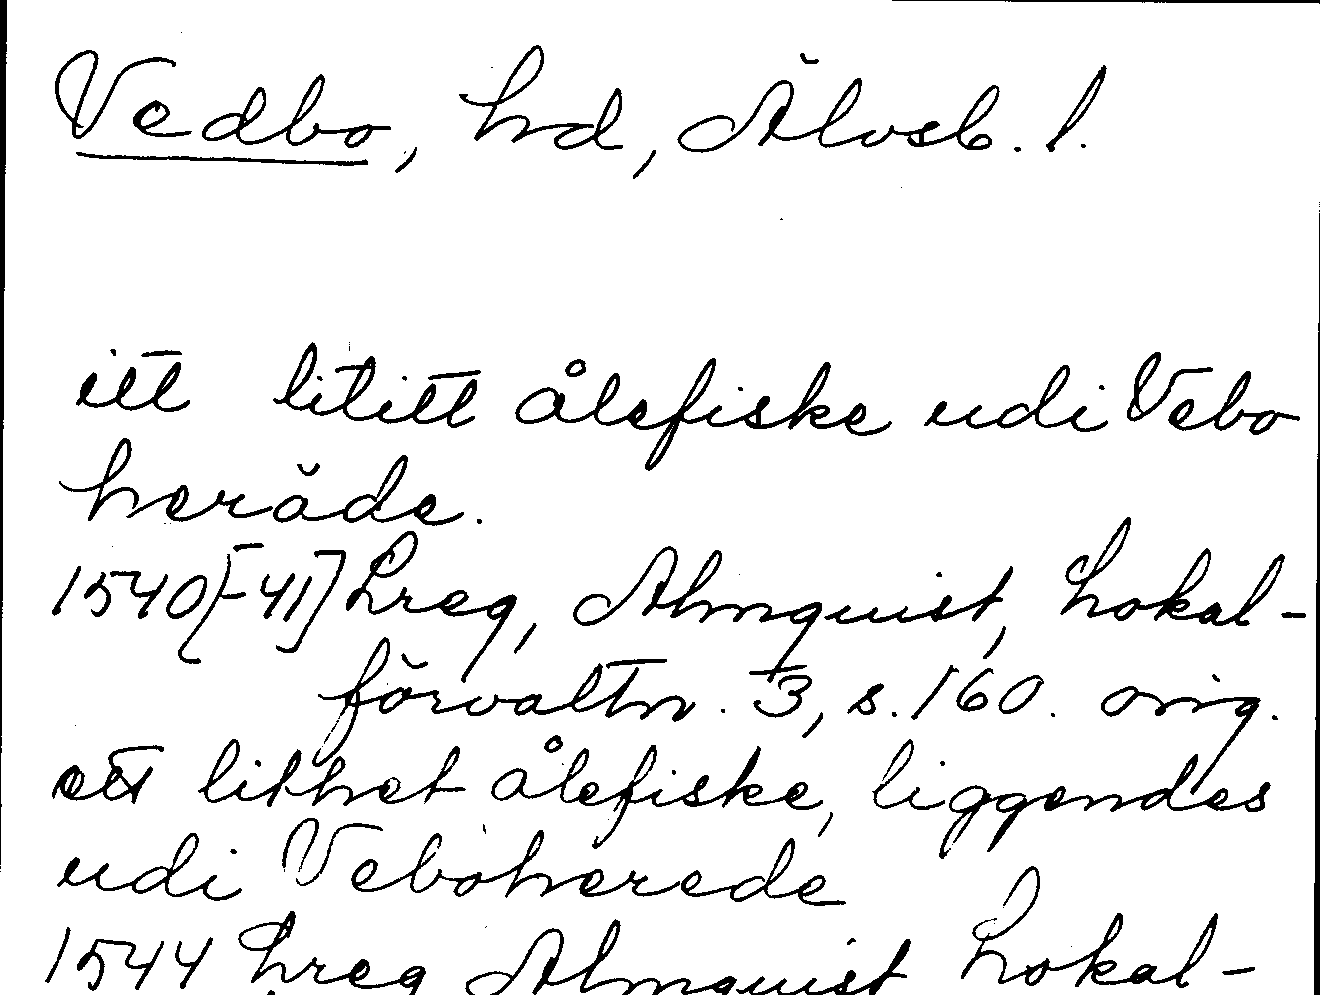 Vedbo, hd, Älvsb. l.
itt lititt ålefiske udi Vebo
heräde.
1540[-41] Lreg, Almquist, Lokal-
förvaltn. 3, s. 160. orig.
ett lithet ålefiske, liggendes
udi Veboherede
1544 Lreg Almquist Lokal-